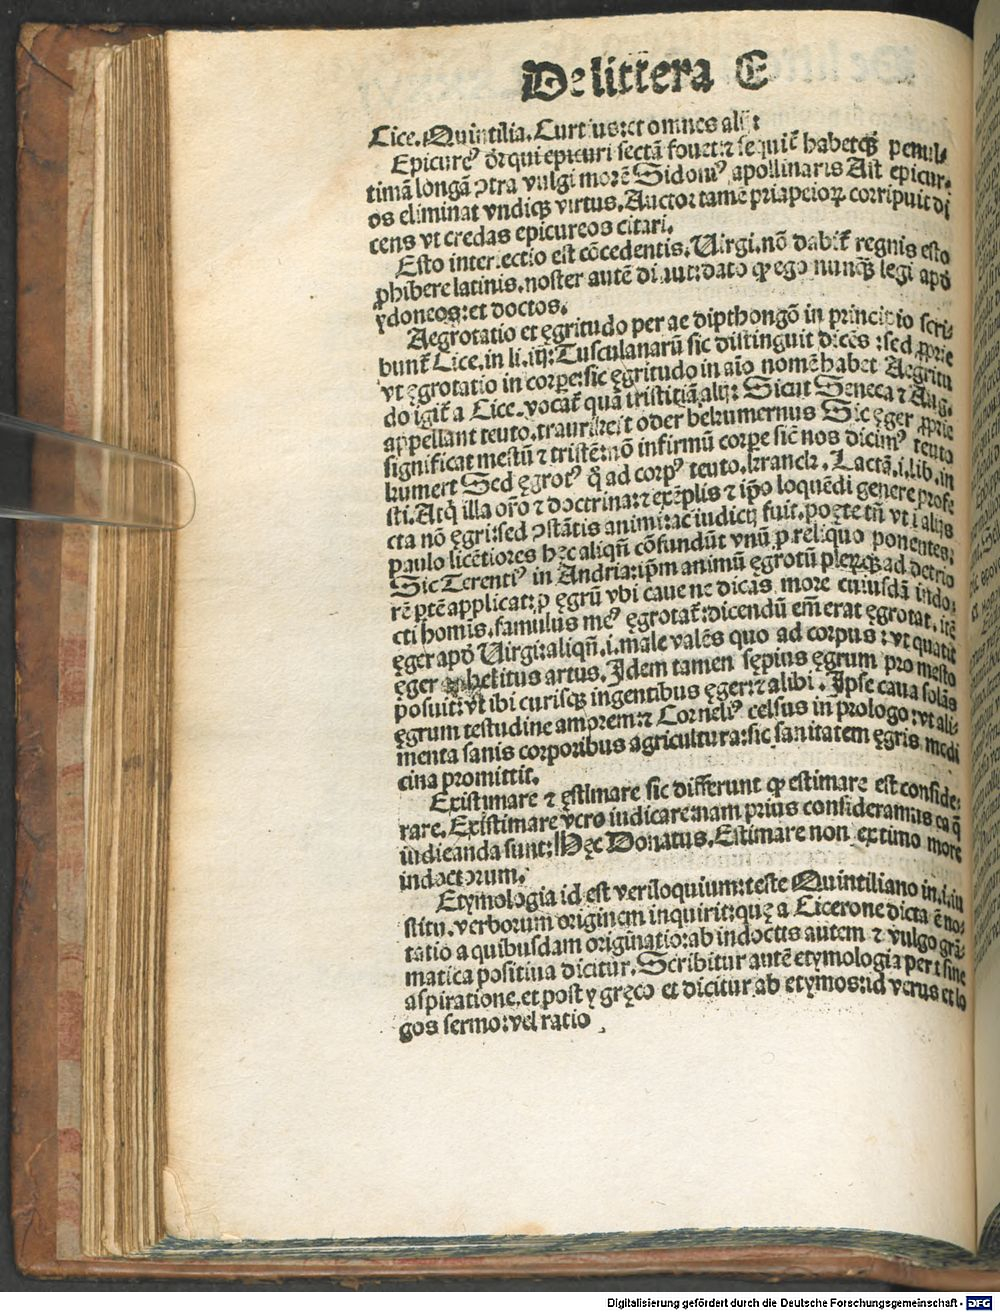 De littera E
Cice. Quintilia. Curtius: et omnes alij:
Epicureꝰ dr̄ qui epicuri sectā fouet ⁊ sequit᷑ habetqꝫ penul-
timā longā ↄtra vulgi morē Sidoniꝰ apollinaris Ait epicur-
os eliminat vndiqꝫ virtus. Auctor tamē priapeioꝝ corripuit di
cens vt credas epicureos citari.
Esto interiectio est cōcedentis. Virgi. nō dabit᷑ regnis esto
ꝓhibere latinis. noster autē di aut: dato ꝙ ego nunqꝫ legi apd̓
ydoneos: et doctos.
Aegrotatio et ęgritudo per ae dipthongō in principio scri-
bunt᷑ Cice. in li. iij: Tusculanarū sic distinguit dicēs: sed ꝓprie
vt ęgrotatio in corpe: sic ęgritudo in aīo nomē habet Aegritu
do igit᷑ a Cice. vocat᷑ quā tristitiā alij: Sicut Seneca ⁊ Aug.
appellant teuto. traurikeit oder bekumernus Sic ęger ꝓprie
significat mestū ⁊ tristē: nō infirmū corpe sic̄ nos dicimꝰ teuto
kumert Sed ęgrotꝰ q̄ ad corpꝰ teuto. kranck. Lactā. i. lib. in
sti. Atq̄ illa or̄o ⁊ doctrina: ⁊ exēplis ⁊ ip̄o loquēdi genere profe
cta nō ęgri: sed ↄstātis animi: ac iudicij fuit. poęte tn̄ vt i alijs
paulo licētiores hęc aliqn̄ cōfundūt vnū p reliquo ponentes:
Sic Terentiꝰ in Andria: ip̄m animū ęgrotū plerūqꝫ ad detrio
rē ꝑtē applicat: p ęgrū vbi caue ne dicas more cuiusdā indo-
cti homīs. famulus meꝰ ęgrotat᷑: dicendū em̄ erat ęgrotat. itē
ęger apd̓ Virgi: aliqn̄. i. male valēs quo ad corpus: vt quatit
ęger anhelitus artus. Idem tamen sępius ęgrum pro mesto
posuit: vt ibi curisqꝫ ingentibus ęger: ⁊ alibi. Ipse caua solās
ęgrum testudine amorem: ⁊ Corneliꝰ celsus in prologo: vt ali-
menta sanis corporibus agricultura: sic sanitatem ęgris medi
cina promittit.
Existimare ⁊ ęstimare sic differunt ꝙ estimare est conside-
rare. Existimare vero iudicare: nam prius consideramus ea q̄
iudicanda sunt: Hęc Donatus. Estimare non extimo more
indoctorum.
Etymologia id est veriloquium: teste Quintiliano in. i. iu
stitu. verborum originem inquirit: quę a Cicerone dicta ē no-
tatio a quibusdam originatio: ab indoctis autem ⁊ vulgo grā-
matica positiua dicitur. Scribitur autē etymologia per t sine
aspiratione. et post y gręco et dicitur ab etymos: id verus et lo
gos sermo: vel ratio.
Digitalisierung gefördert durch die Deutsche Forschungsgemeinschaft - DFG